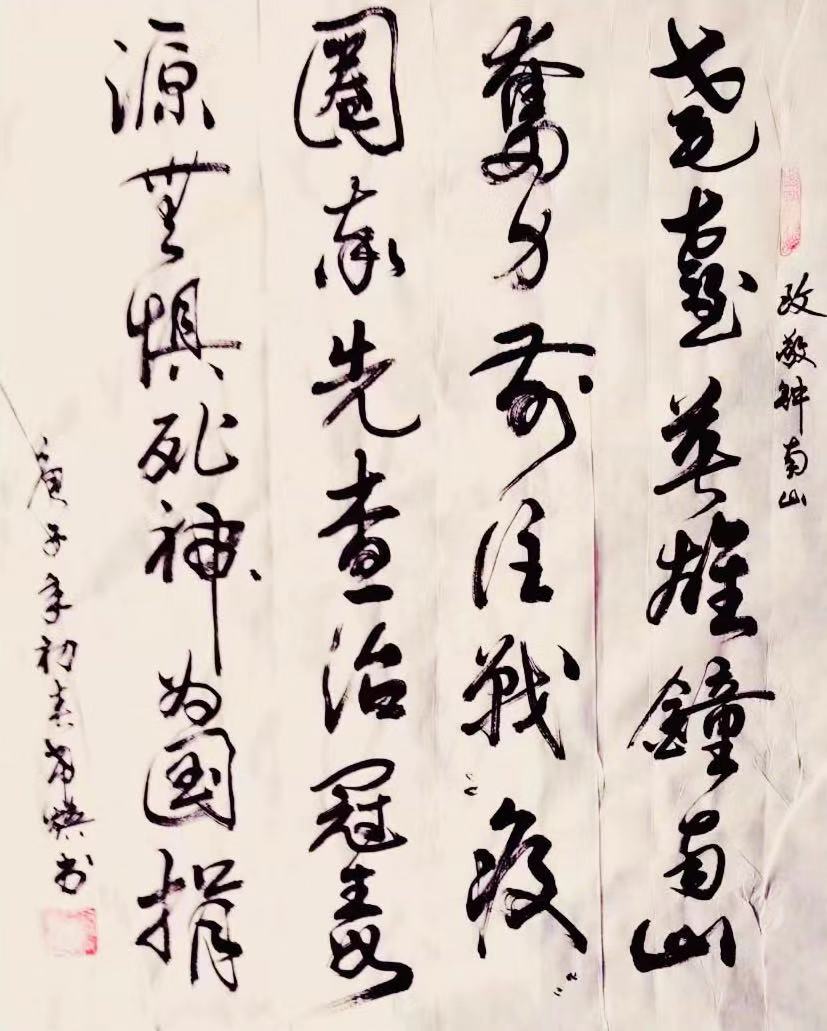 致敬钟南山
耄耋英雄鐘南山
奮力前往戰疫
圈率先查治冠毒
源無懼死神为国捐
庚子年初春书